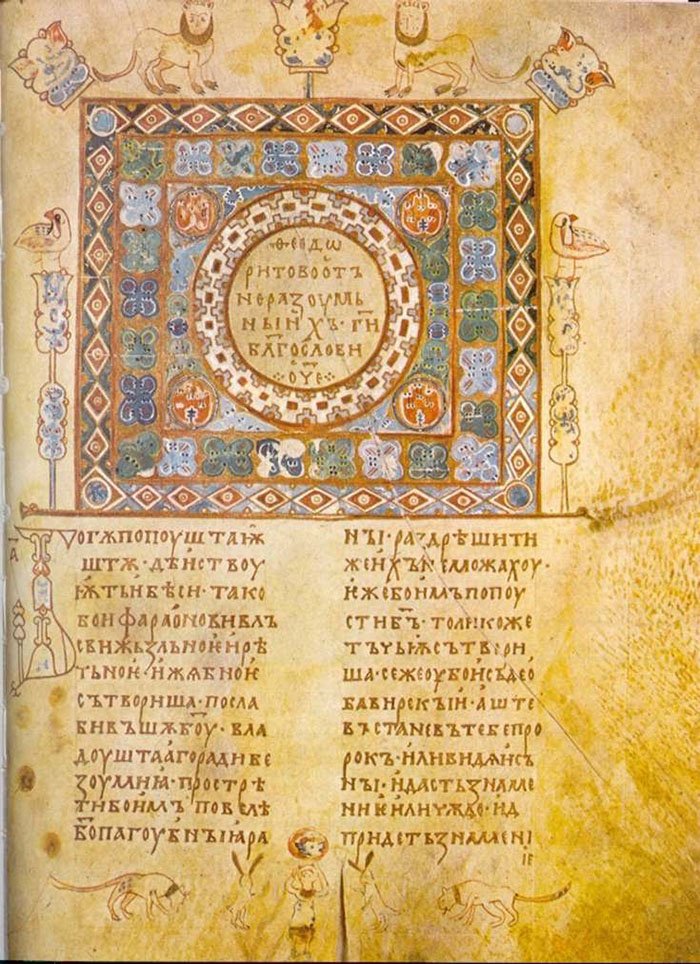 ·Ѳеодѡ
ритово отъ
неразоумь
ныихъ· ги҃
бл҃гослови
·:· оч҃е ·:·
а҃
Богѫ попоуштаѭ
штѫ· дѣиствоу
ѭть и бѣси· тако
бо и фараонови влъ
сви жьзльнои и рѣ
чьнои· и жѧбнои
сътвориша· посла
бивъшѫ б҃оу· вла
доуштааго ради бе
зоумиꙗ· прострѣ
ти бо имъ повелѣ
б҃ъ пагоубнъіꙗ ра
нъі· раздрѣшити
же ихъ не можахоу·
иже бо имъ попоу
сти б҃ъ· толикоже
тъчьѭ сътвори
ша· се же оубо и съде о
бави рекъіи· аште
въстанеть в тебе про
рокъ· или видѧи съ
нъі· и дасть знаме
ние или чюдо· и
придеть знамени
ѥ